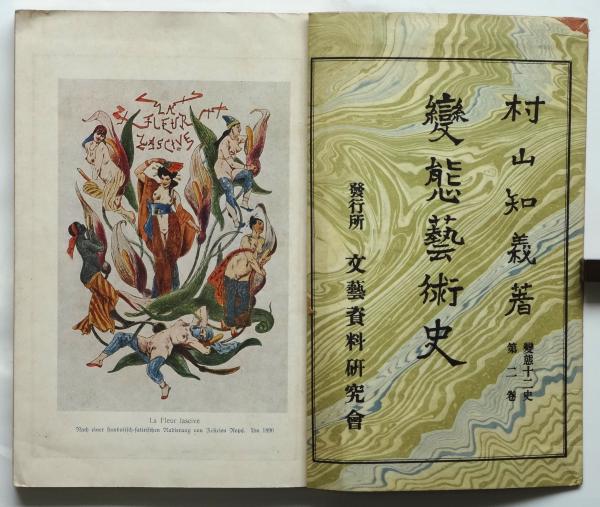 LA
FLEUR
LASCIVE
La Fleur lascive
Nach einer symbolisch-satirischen Radierung von Félicien Rops. Um 1890
村山知義著
變態十二史
第二卷
變態藝術史
發行所 文藝資料研究會